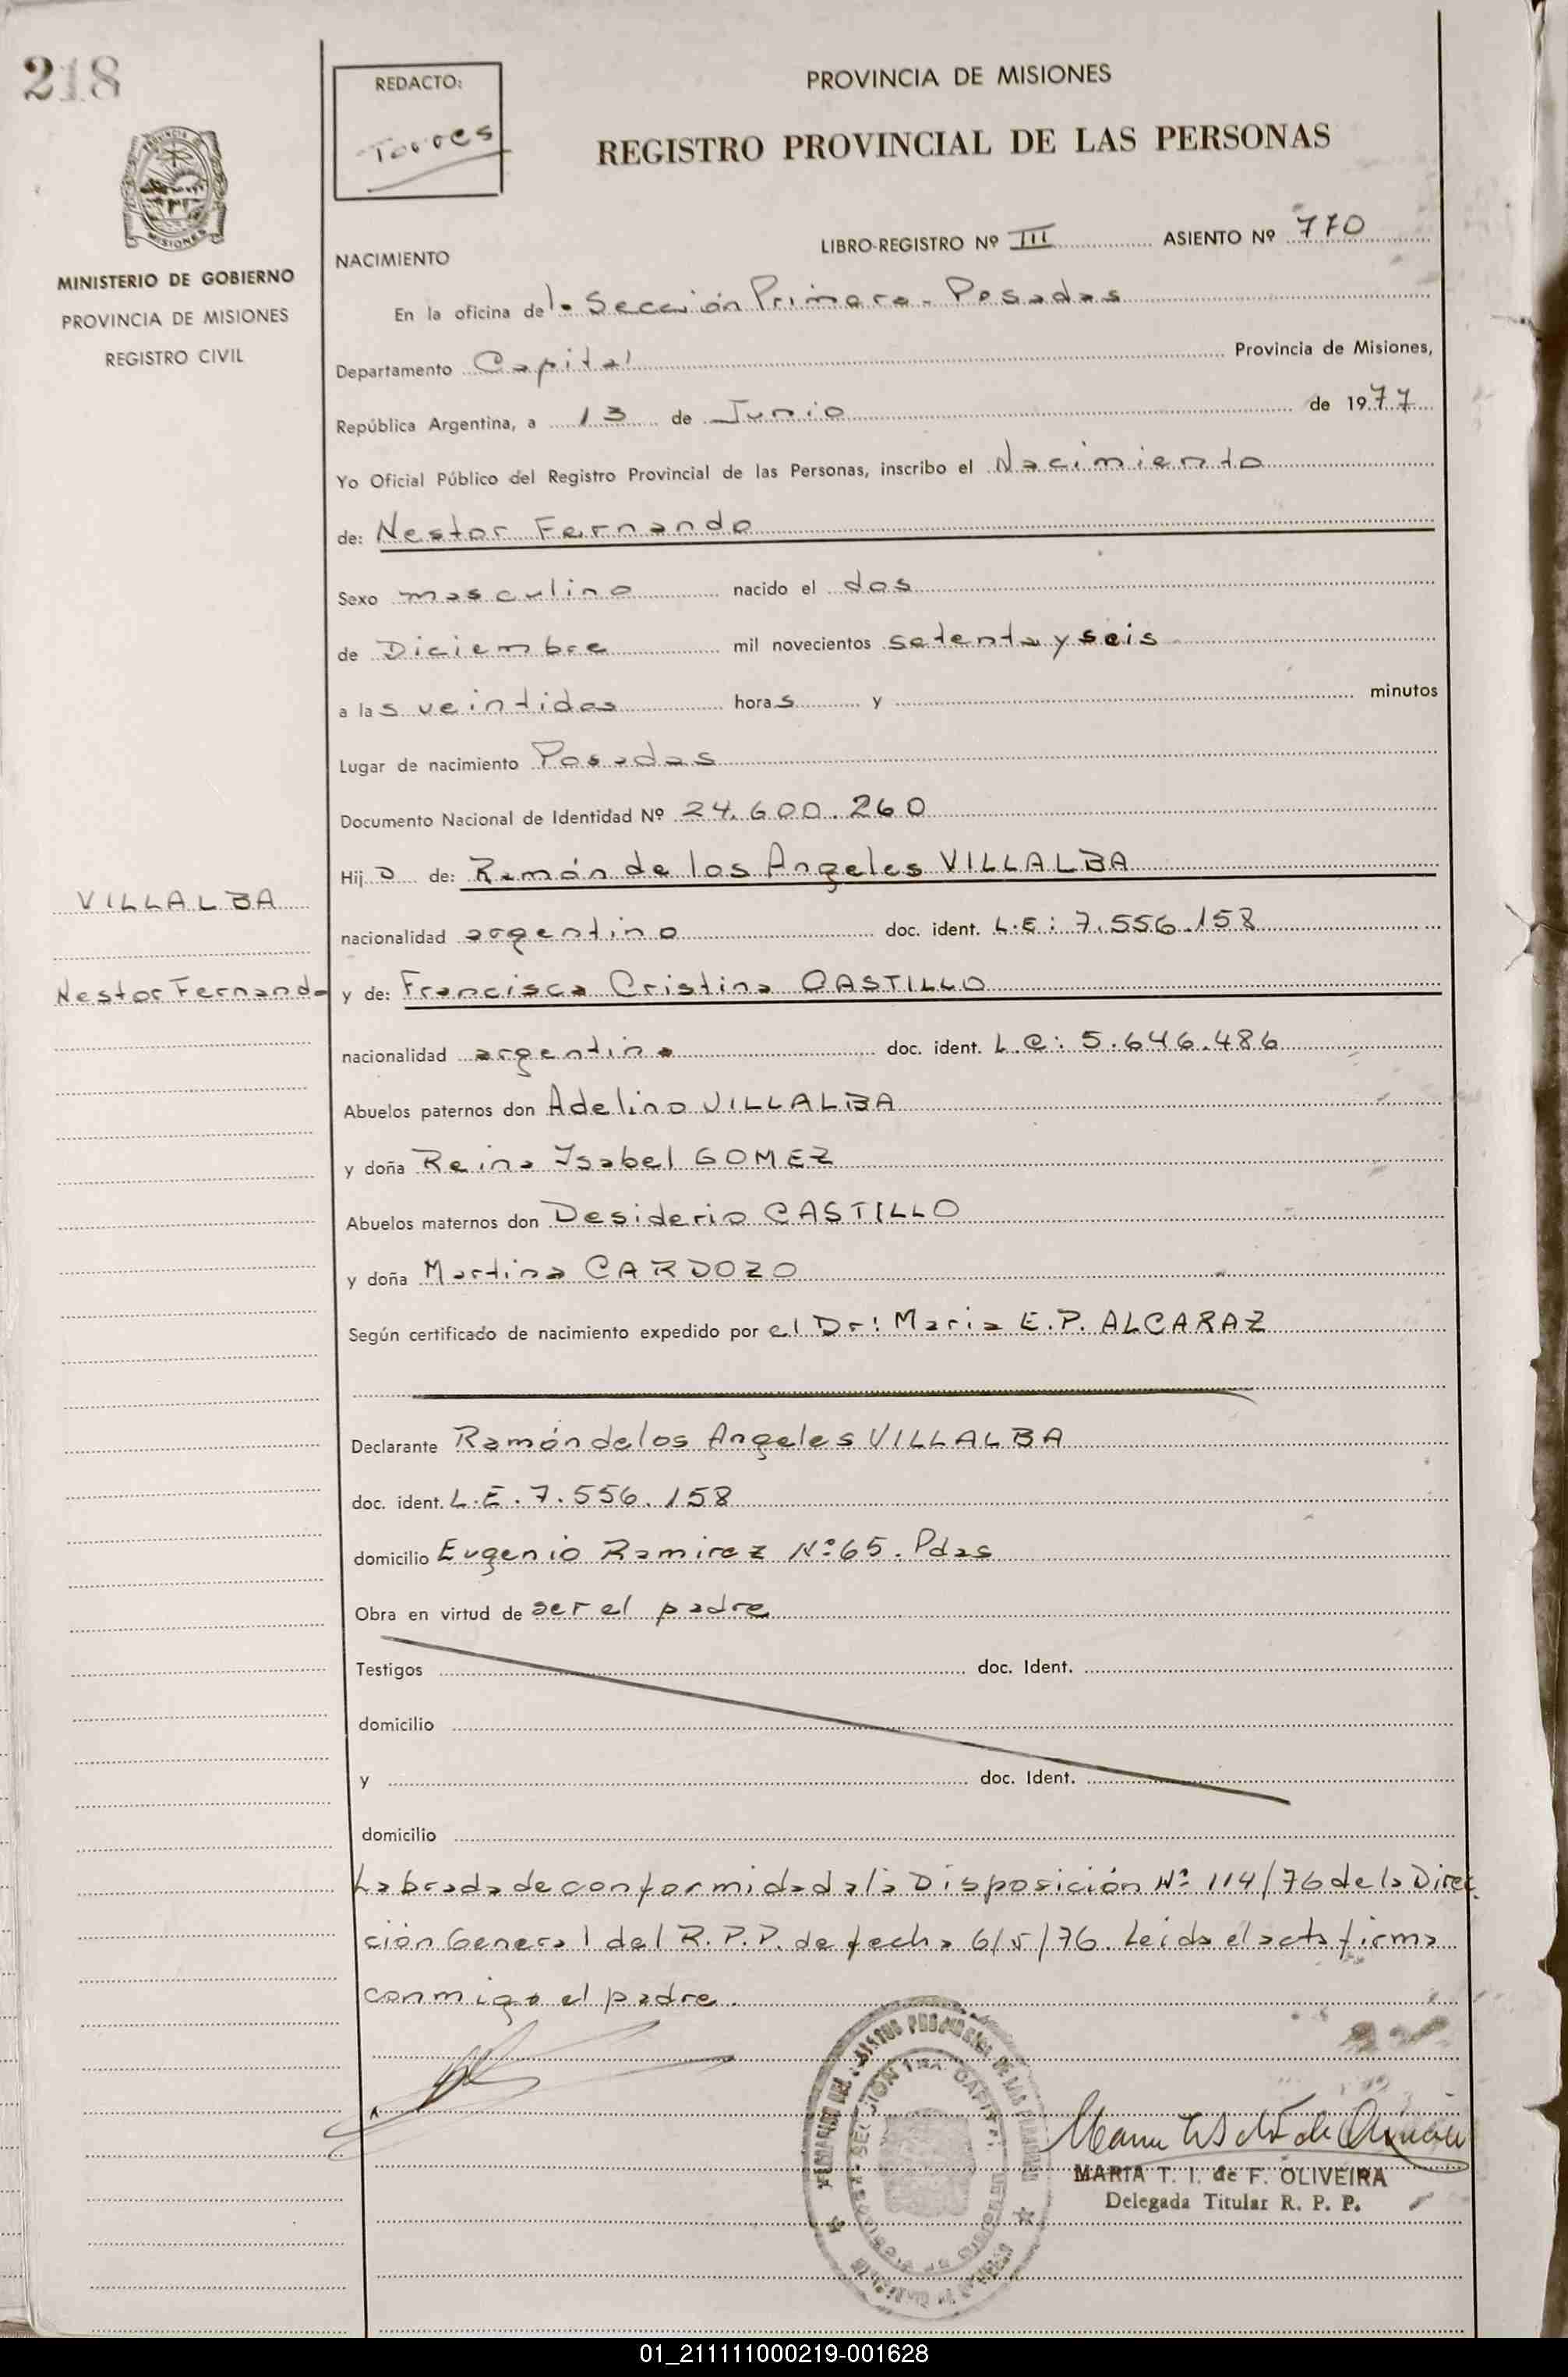 218
REDACTO:
Torres
PROVINCIA DE MISIONES
REGISTRO PROVINCIAL DE LAS PERSONAS
PROVINCIA
MISIONES
MINISTERIO DE GOBIERNO
PROVINCIA DE MISIONES
REGISTRO CIVIL
LIBRO-REGISTRO Nº III ASIENTO Nº 770
NACIMIENTO
En la oficina de la Sección Primera - Posadas
Departamento Capital Provincia de Misiones,
República Argentina, a 13 de Junio de 1977
Yo Oficial Público del Registro Provincial de las Personas, inscribo el Nacimiento
de: Nestor Fernando
Sexo masculino nacido el dos
de Diciembre mil novecientos setenta y seis
a las veintidos horas y minutos
Lugar de nacimiento Posadas
Documento Nacional de Identidad Nº 24.600.260
Hijo de: Ramón de los Angeles VILLALBA
VILLALBA
nacionalidad argentino doc. ident. L.E: 7.556.158
Nestor Fernando
y de: Francisca Cristina CASTILLO
nacionalidad argentina doc. ident. L.C: 5.646.486
Abuelos paternos don Adelino VILLALBA
y doña Reina Ysabel GOMEZ
Abuelos maternos don Desiderio CASTILLO
y doña Martina CARDOZO
Según certificado de nacimiento expedido por el Dr: Maria E.P. ALCARAZ
Declarante Ramón de los Angeles VILLALBA
doc. ident. L.E. 7.556.158
domicilio Eugenio Ramirez Nº 65. Pdas
Obra en virtud de ser el padre
Testigos doc. Ident.
domicilio
y doc. Ident.
domicilio
Labrada de conformidad a la Disposición Nº 114/76 de la Direc
ción General del R.P.P. de fecha 6/5/76. Leida el acta firma
conmigo el padre.
MARIA T. I. de F. OLIVEIRA
Delegada Titular R. P. P.
01_211111000219-001628